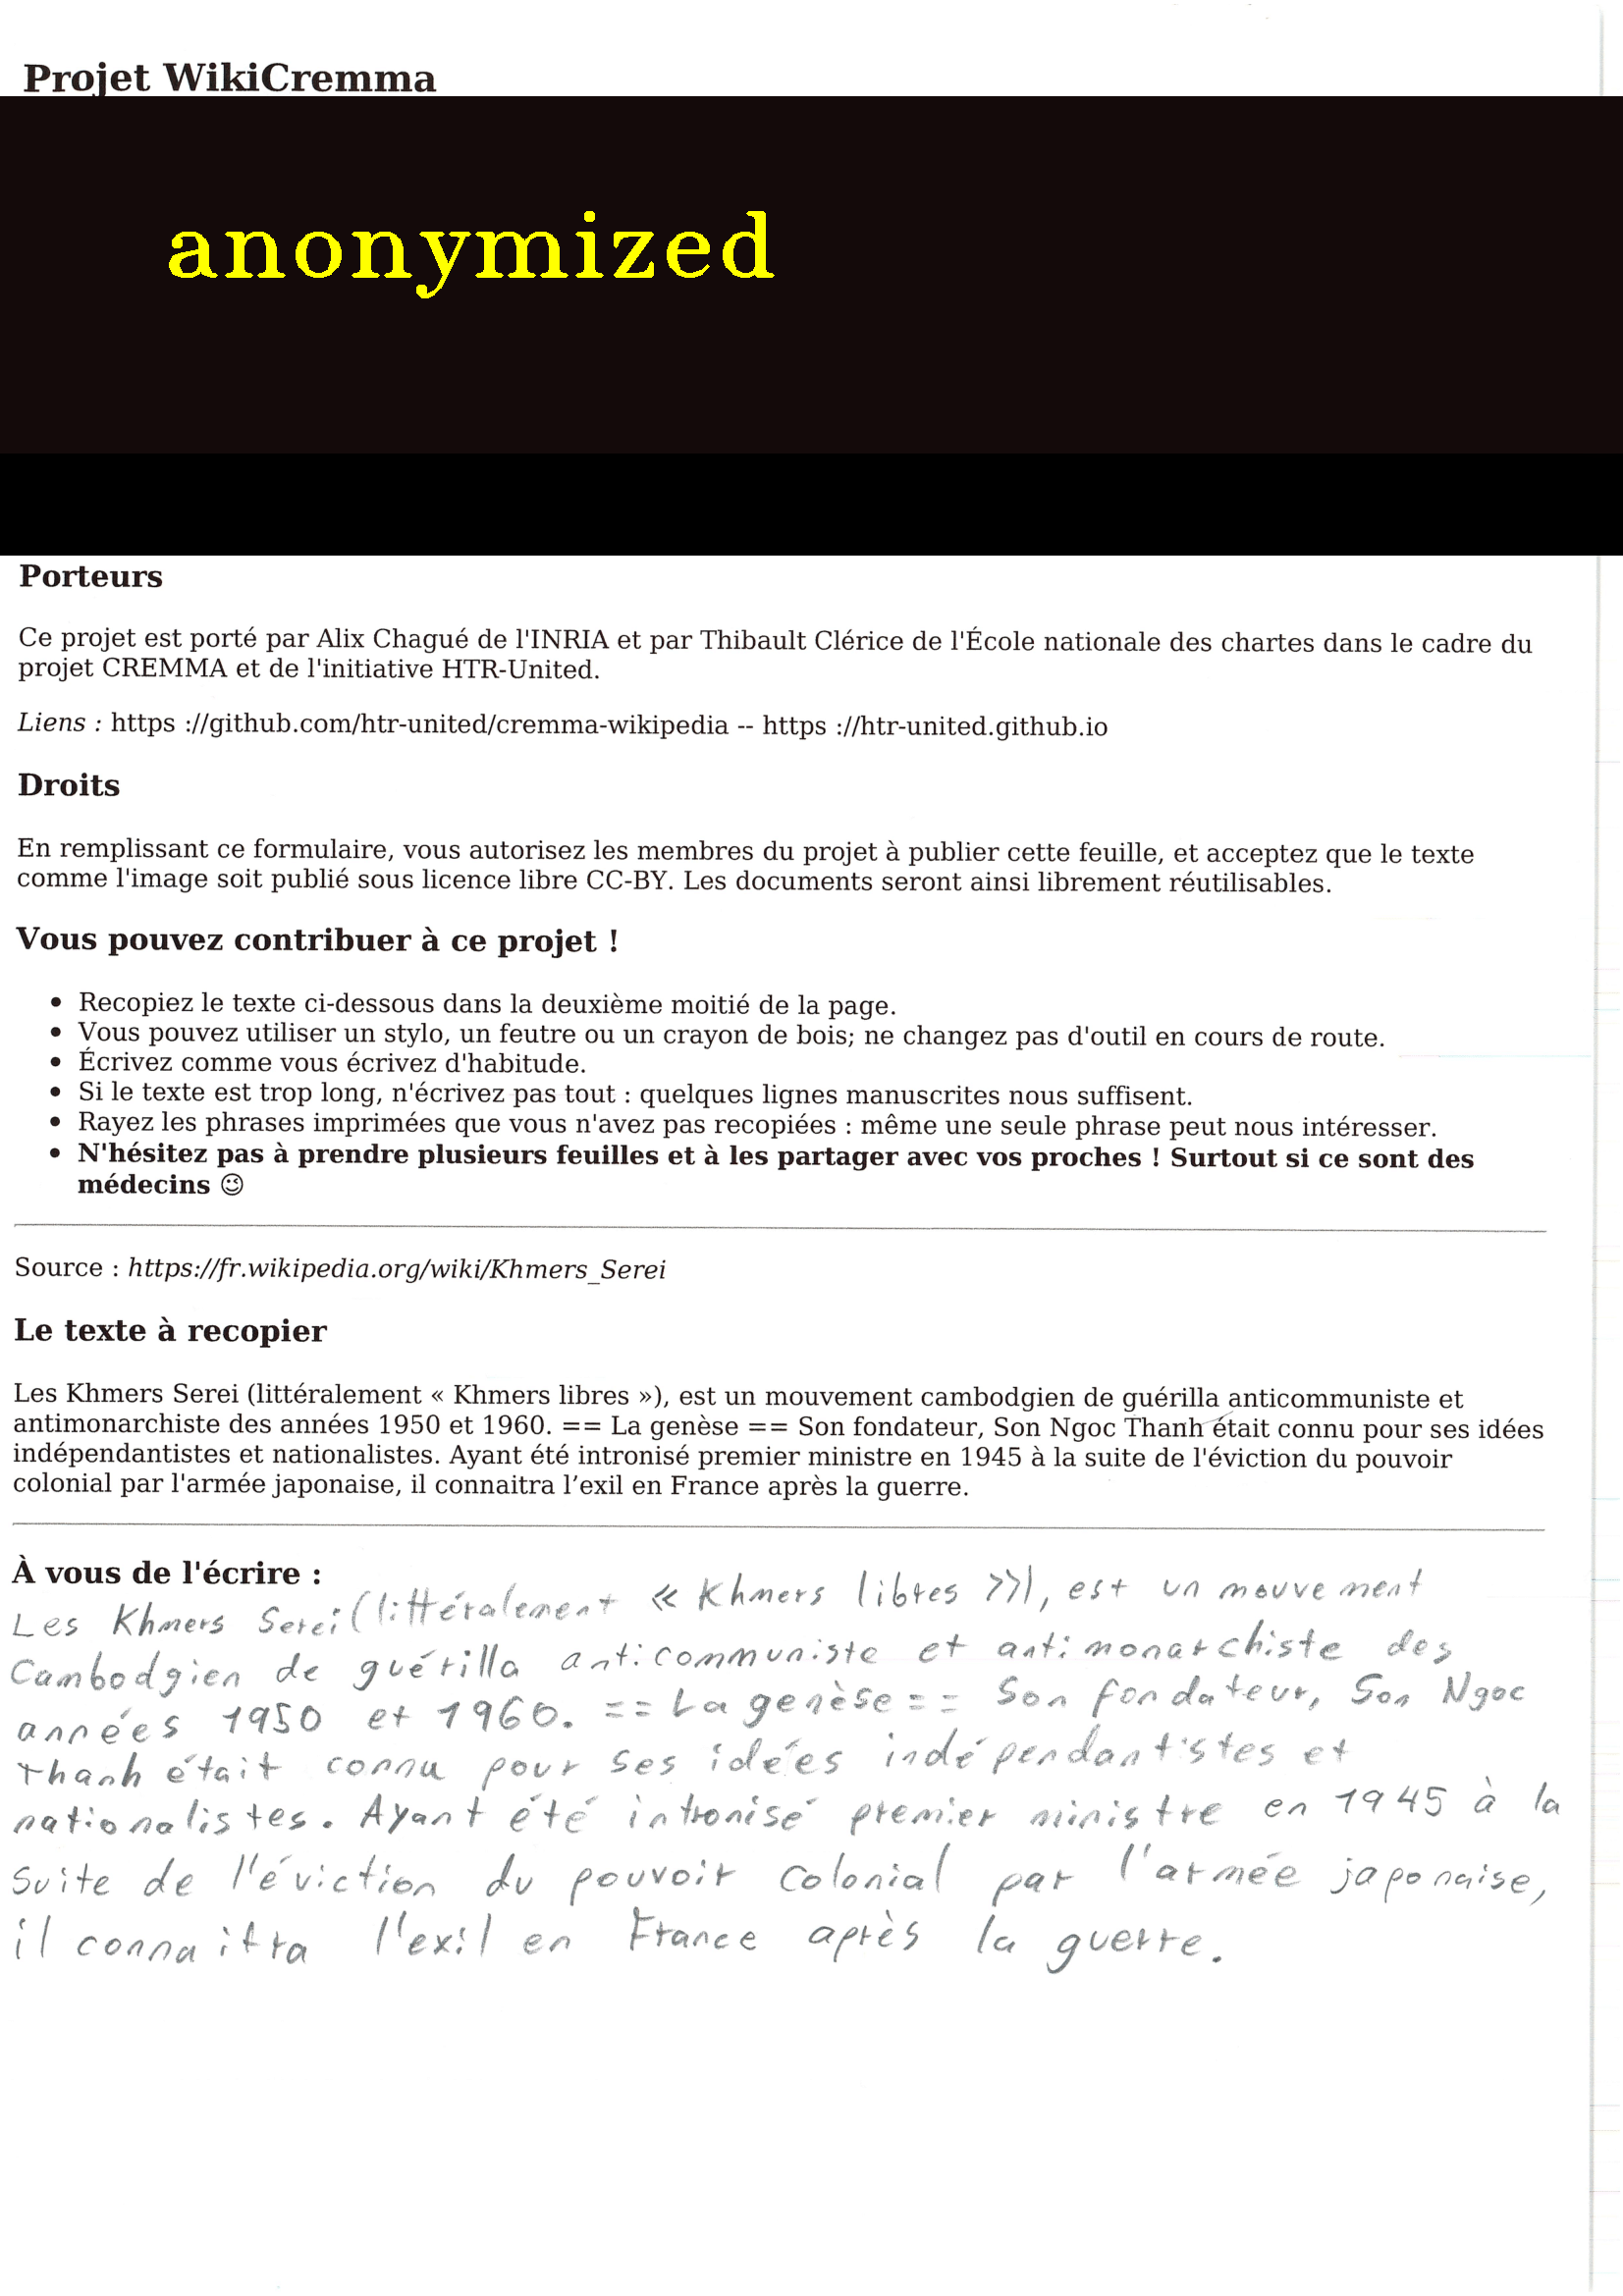 Projet WikiCremma
anonymized
Porteurs
Ce projet est porté par Alix Chagué de l'INRIA et par Thibault Clérice de l'École nationale des chartes dans le cadre du
projet CREMMA et de l'initiative HTR-United.
Liens : https ://github.com/htr-united/cremma-wikipedia -- https ://htr-united.github.io
Droits
En remplissant ce formulaire, vous autorisez les membres du projet à publier cette feuille, et acceptez que le texte
comme l'image soit publié sous licence libre CC-BY. Les documents seront ainsi librement réutilisables.
Vous pouvez contribuer à ce projet !
• Recopiez le texte ci-dessous dans la deuxième moitié de la page.
• Vous pouvez utiliser un stylo, un feutre ou un crayon de bois; ne changez pas d'outil en cours de route.
• Écrivez comme vous écrivez d'habitude.
• Si le texte est trop long, n'écrivez pas tout : quelques lignes manuscrites nous suffisent.
• Rayez les phrases imprimées que vous n'avez pas recopiées : même une seule phrase peut nous intéresser.
• N'hésitez pas à prendre plusieurs feuilles et à les partager avec vos proches ! Surtout si ce sont des
médecins 😉
Source : https://fr.wikipedia.org/wiki/Khmers_Serei
Le texte à recopier
Les Khmers Serei (littéralement « Khmers libres »), est un mouvement cambodgien de guérilla anticommuniste et
antimonarchiste des années 1950 et 1960. == La genèse == Son fondateur, Son Ngoc Thanh était connu pour ses idées
indépendantistes et nationalistes. Ayant été intronisé premier ministre en 1945 à la suite de l'éviction du pouvoir
colonial par l'armée japonaise, il connaitra l’exil en France après la guerre.
À vous de l'écrire :
Les Khmers Serei (littéralement « Khmers libres »), est un mouvement
Cambodgien de guérilla anticommuniste et antimonarchiste des
années 1950 et 1960. == La genèse == Son fondateur, Son Ngoc
Thanh était connu pour ses idées indépendantistes et
nationalistes. Ayant été intronisé premier ministre en 1945 à la
suite de l'éviction du pouvoir colonial par l'armée japonaise,
il connaitra l'exil en France après la guerre.